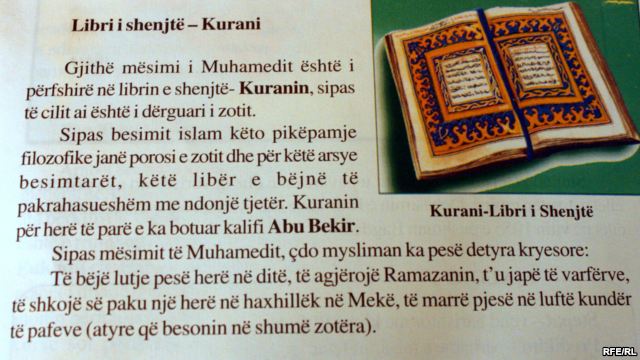 Libri i shenjtë – Kurani
Gjithë mësimi i Muhamedit është i
përfshirë në librin e shenjtë- Kuranin, sipas
të cilit ai është i dërguari i zotit.
Sipas besimit islam këto pikëpamje
filozofike janë porosi e zotit dhe për këtë arsye
besimtarët, këtë libër e bëjnë të
pakrahasueshëm me ndonjë tjetër. Kuranin
për herë të parë e ka botuar kalifi Abu Bekir.
Kurani-Libri i Shenjtë
Sipas mësimit të Muhamedit, çdo mysliman ka pesë detyra kryesore:
Të bëjë lutje pesë herë në ditë, të agjërojë Ramazanin, t’u japë të varfërve,
të shkojë së paku një herë në haxhillëk në Mekë, të marrë pjesë në luftë kundër
të pafeve (atyre që besonin në shumë zotëra).
RFE/RL